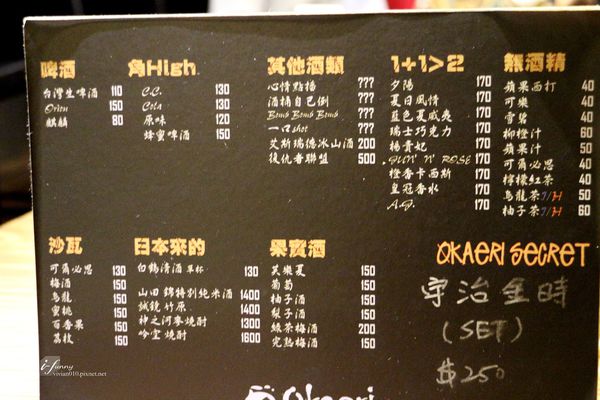 啤酒
台灣生啤酒 110
Orion 150
麒麟 80
角High
C.C. 130
Cola 130
原味 120
蜂蜜啤酒 150
其他酒類
心情點播 ???
酒桶自已倒 ???
Bomb Bomb Bomb ???
一口shot ???
艾斯瑞德冰山酒 200
復仇者聯盟 500
1+1>2
夕陽 170
夏日風情 170
藍色夏威夷 170
瑞士巧克力 170
楊貴妃 170
GUN' N' ROSE 170
橙香卡西斯 170
皇冠香水 170
A.J. 170
無酒精
蘋果西打 40
可樂 40
雪碧 40
柳橙汁 60
蘋果汁 50
可爾必思 40
檸檬紅茶 40
烏龍茶I/H 50
柚子茶I/H 60
沙瓦
可爾必思 130
梅酒 150
烏龍 150
蜜桃 150
百香果 150
荔枝 150
日本來的
白鶴清酒 單杯 130
山田錦特別純米酒 1400
誠鏡竹原 1400
神之河麥燒酎 1300
吟空燒酎 1600
果實酒
芙樂夏 150
葡萄 150
柚子酒 150
梨子酒 150
綠茶梅酒 200
完熟梅酒 150
OKAERI SECRET
宇治金時
(SET)
$250
Okaeri
i-funny
vivian010.pixnet.net